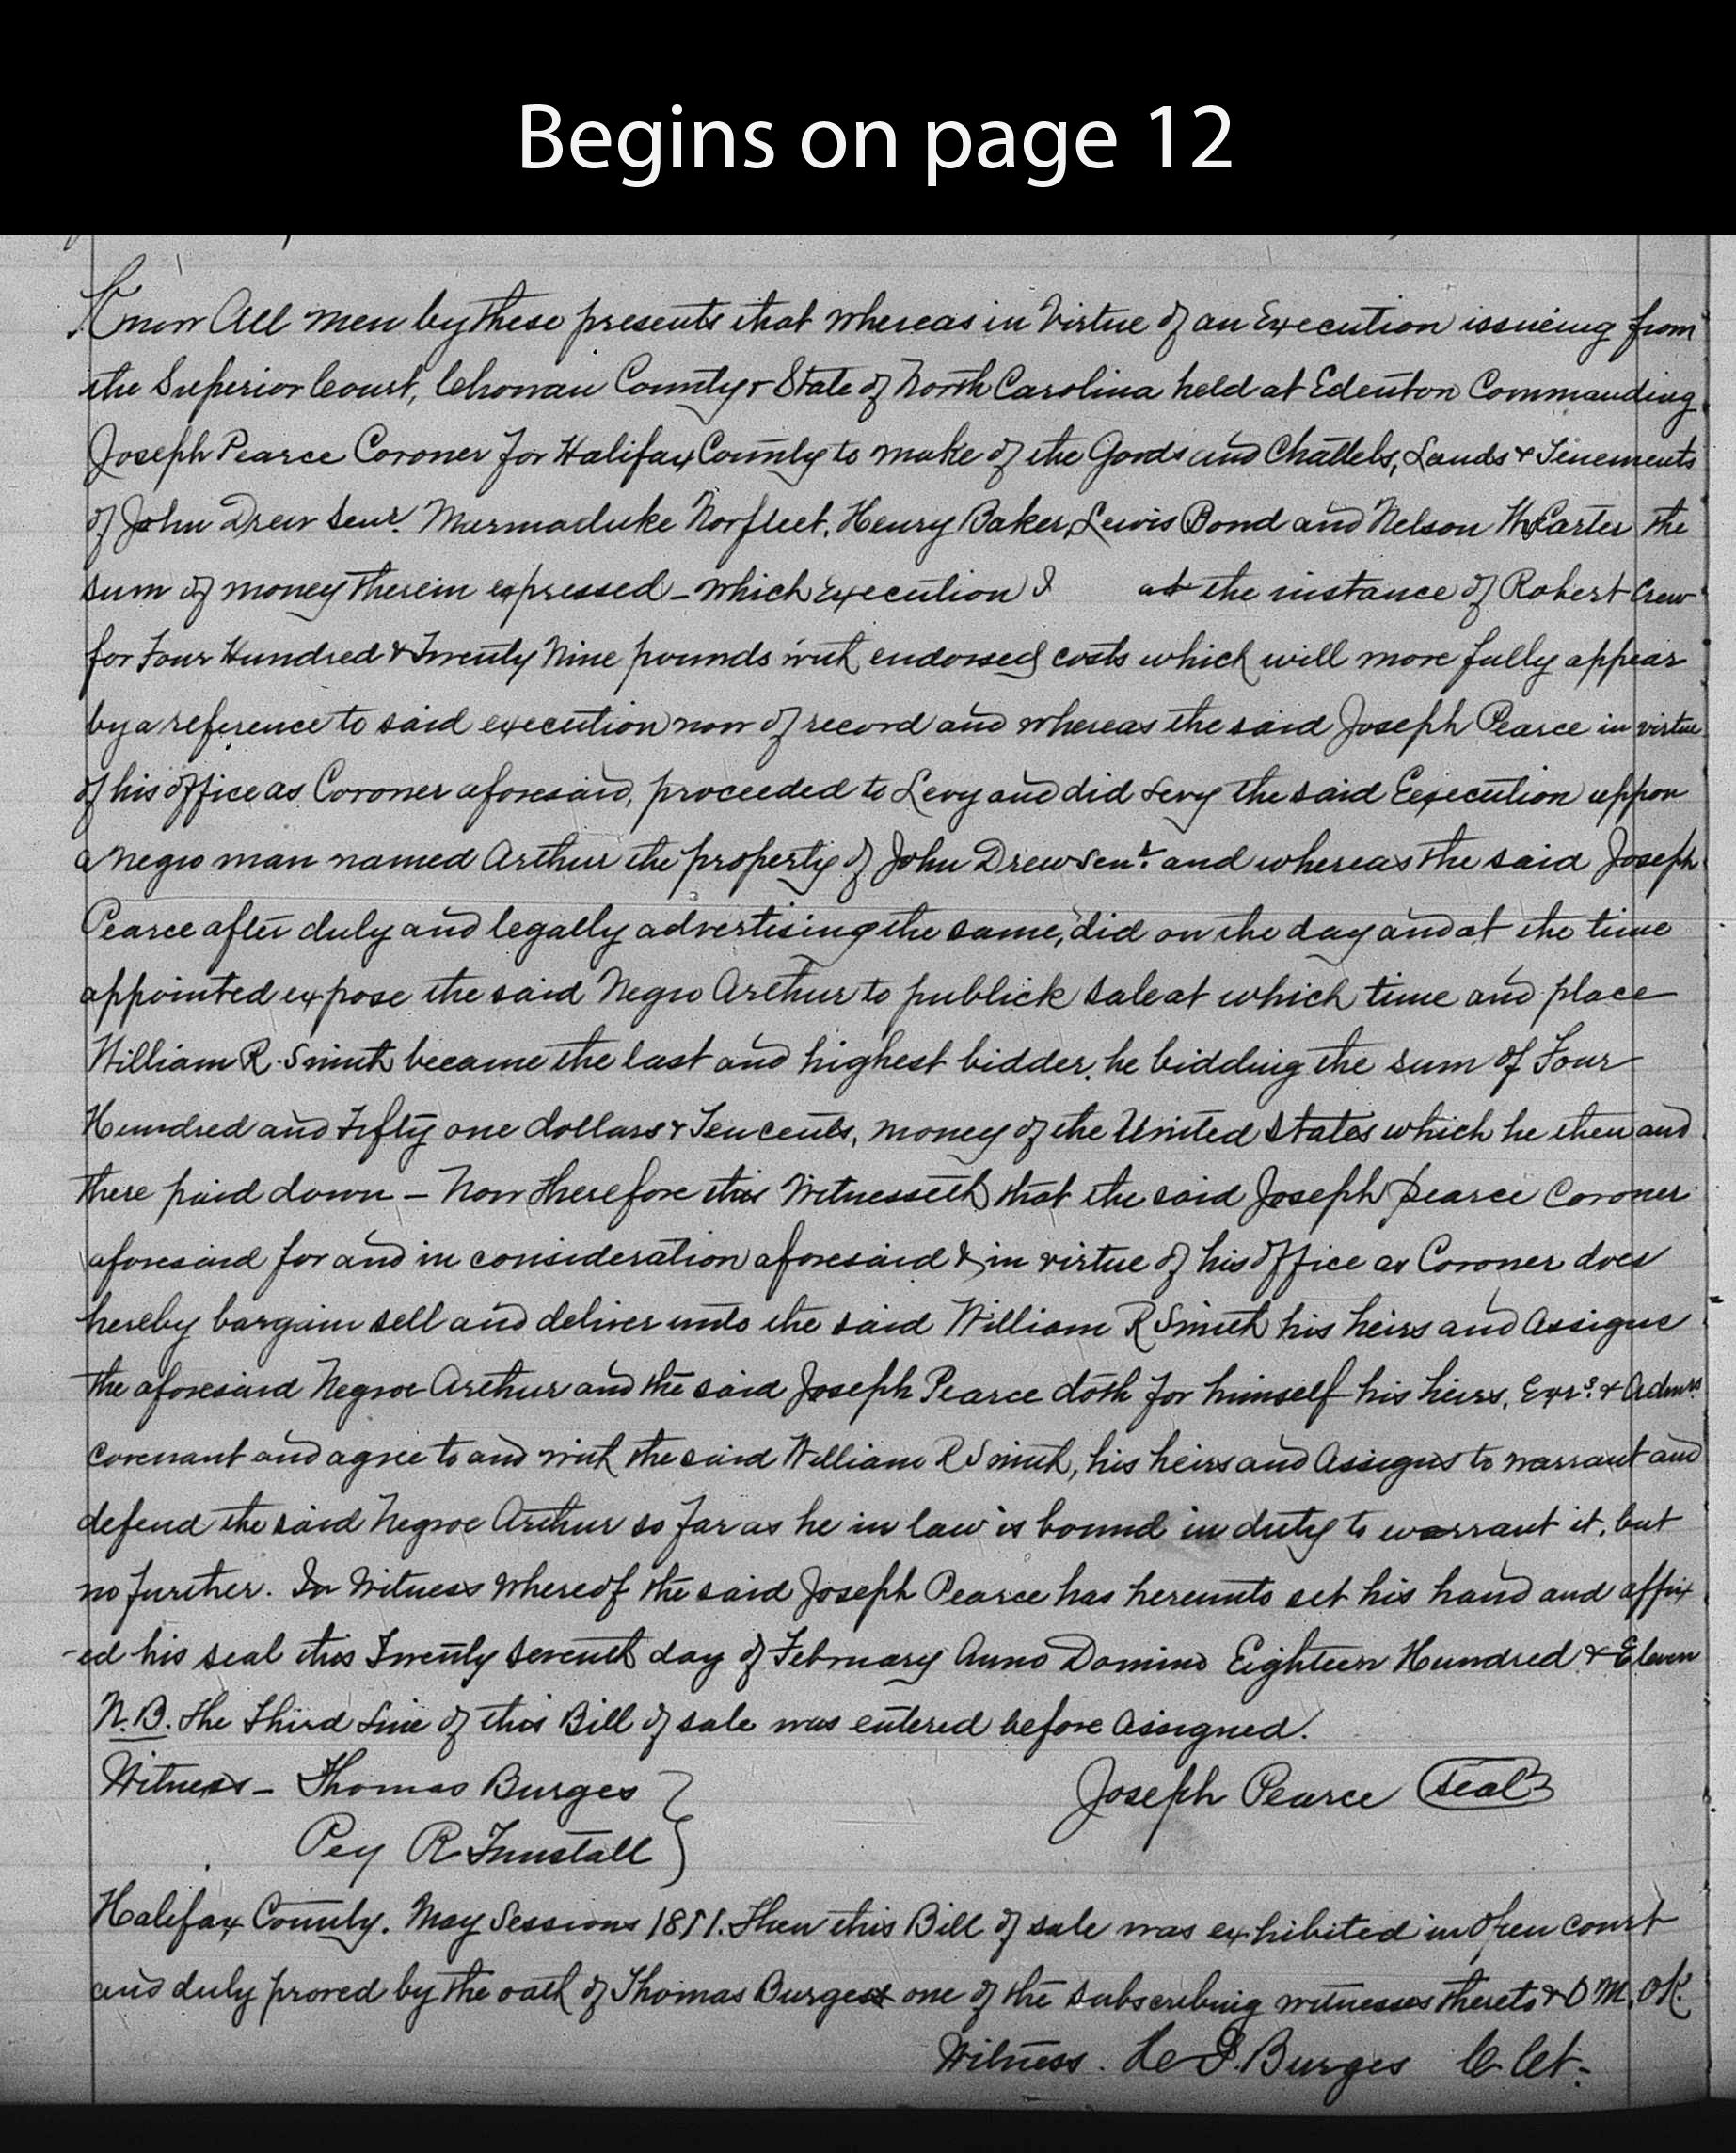 Begins on page 12
Know All men by these presents that whereas in Virtue of an Execution issuieng from
the Superior Court, Chowan County & State of North Carolina held at Edenton Commanding
Joseph Pearce Coroner for Halifax County to make of the Goods and Chattels, Lands & Tenements
of John Drew Senr. Marmaduke Norfleet, Henry Baker, Lewis Bond and Nelson Carter the
sum of money therein expressed – which Execution I at the instance of Robert Crew
for Four Hundred & Twenty Nine pounds with endorsed costs which will more fully appear
by a reference to said execution now of record and whereas the said Joseph Pearce in virtue
of his office as Coroner aforesaid, proceeded to Levy and did Levy the said Execution uppon
a negro man named Arthur the property of John Drew Senr. and whereas the said Joseph
Pearce after duly and legally advertising the same, did on the day and at the time
appointed expose the said Negro Arthur to publick sale at which time and place
William R. Smith became the last and highest bidder, he bidding the sum of Four
Hundred and Fifty one dollars & Ten cents, money of the United States which he then and
there paid down – Now therefore this Witnesseth that the said Joseph Pearce Coroner
aforesaid for and in consideration aforesaid & in virtue of his office as Coroner does
hereby bargain sell and deliver unto the said William R Smith his heirs and Assigns
the aforesaid Negroe Arthur and the said Joseph Pearce doth for himself his heirs, Exrs. & Admrs
covenant and agree to and with the said William R Smith, his heirs and Assigns to warrant and
defend the said Negroe Arthur so far as he in law is bound in duty to warrant it, but
no further. In Witness Whereof the said Joseph Pearce has hereunto set his hand and affix
-ed his seal this Twenty seventh day of February Anno Domino Eighteen Hundred & Eleven
N.B. The Third Line of this Bill of sale was entered before Assigned.
Witness – Thomas Burges } Joseph Pearce (seal)
Pey R. Tunstall
Halifax County. May Sessions 1811. Then this Bill of sale was exhibited in Open court
and duly proved by the oath of Thomas Burges one of the subscribing witnesses thereto & O M. OR.
Witness. Burges C. Ct.